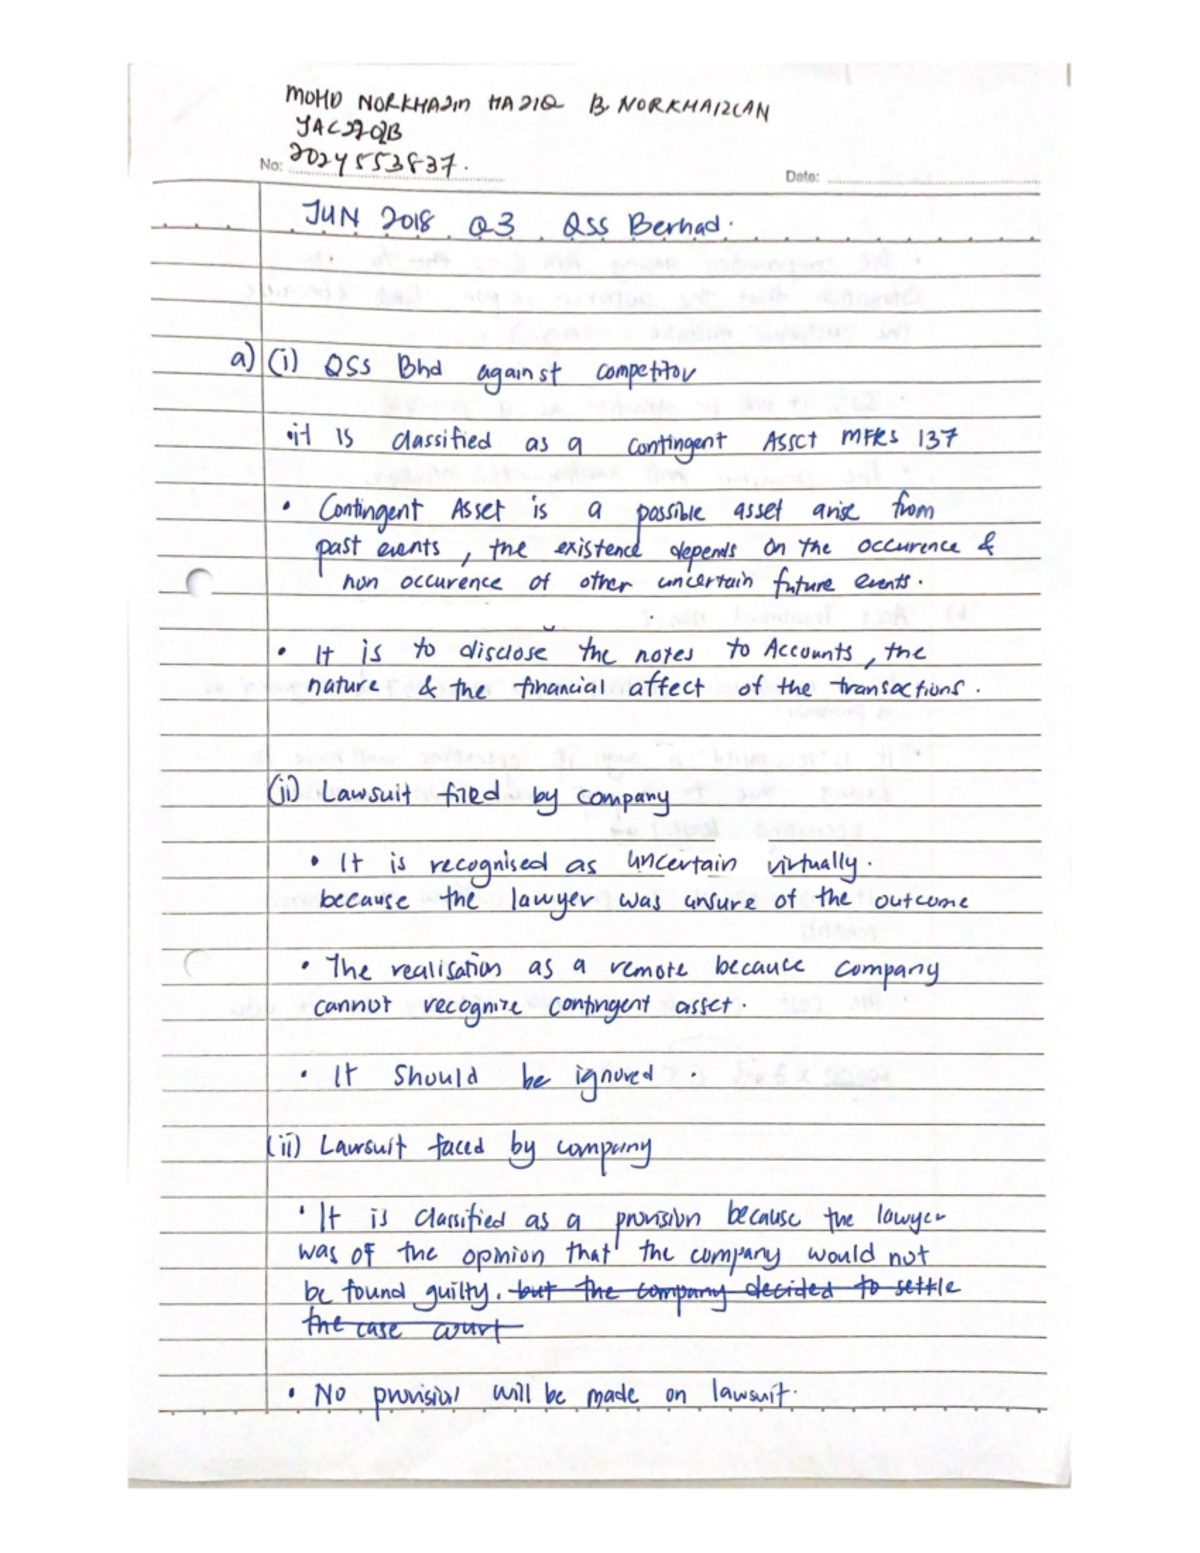 MOHD NORKHAZIM HAZIQ B. NORKHAIZLAN
JAC2202B
No: 2024553837.
Date:
JUN 2018 Q3 QSS Berhad.
a) (i) QSS Bhd against competitor
• it is classified as a Contingent Asset MFRS 137
• Contingent Asset is a possible asset arise from
past events, the existence depends on the occurence &
non occurence of other uncertain future events.
• It is to disclose the notes to Accounts, the
nature & the financial affect of the transactions.
(ii) Lawsuit filed by company
• It is recognised as uncertain virtually.
because the lawyer was unsure of the outcome
• The realisation as a remote because company
cannot recognize contingent asset.
• It should be ignored.
(ii) Lawsuit faced by company
• It is classified as a provision because the lawyer
was of the opinion that the company would not
be found guilty. but the company decided to settle
the case court
• No provision will be made on lawsuit.